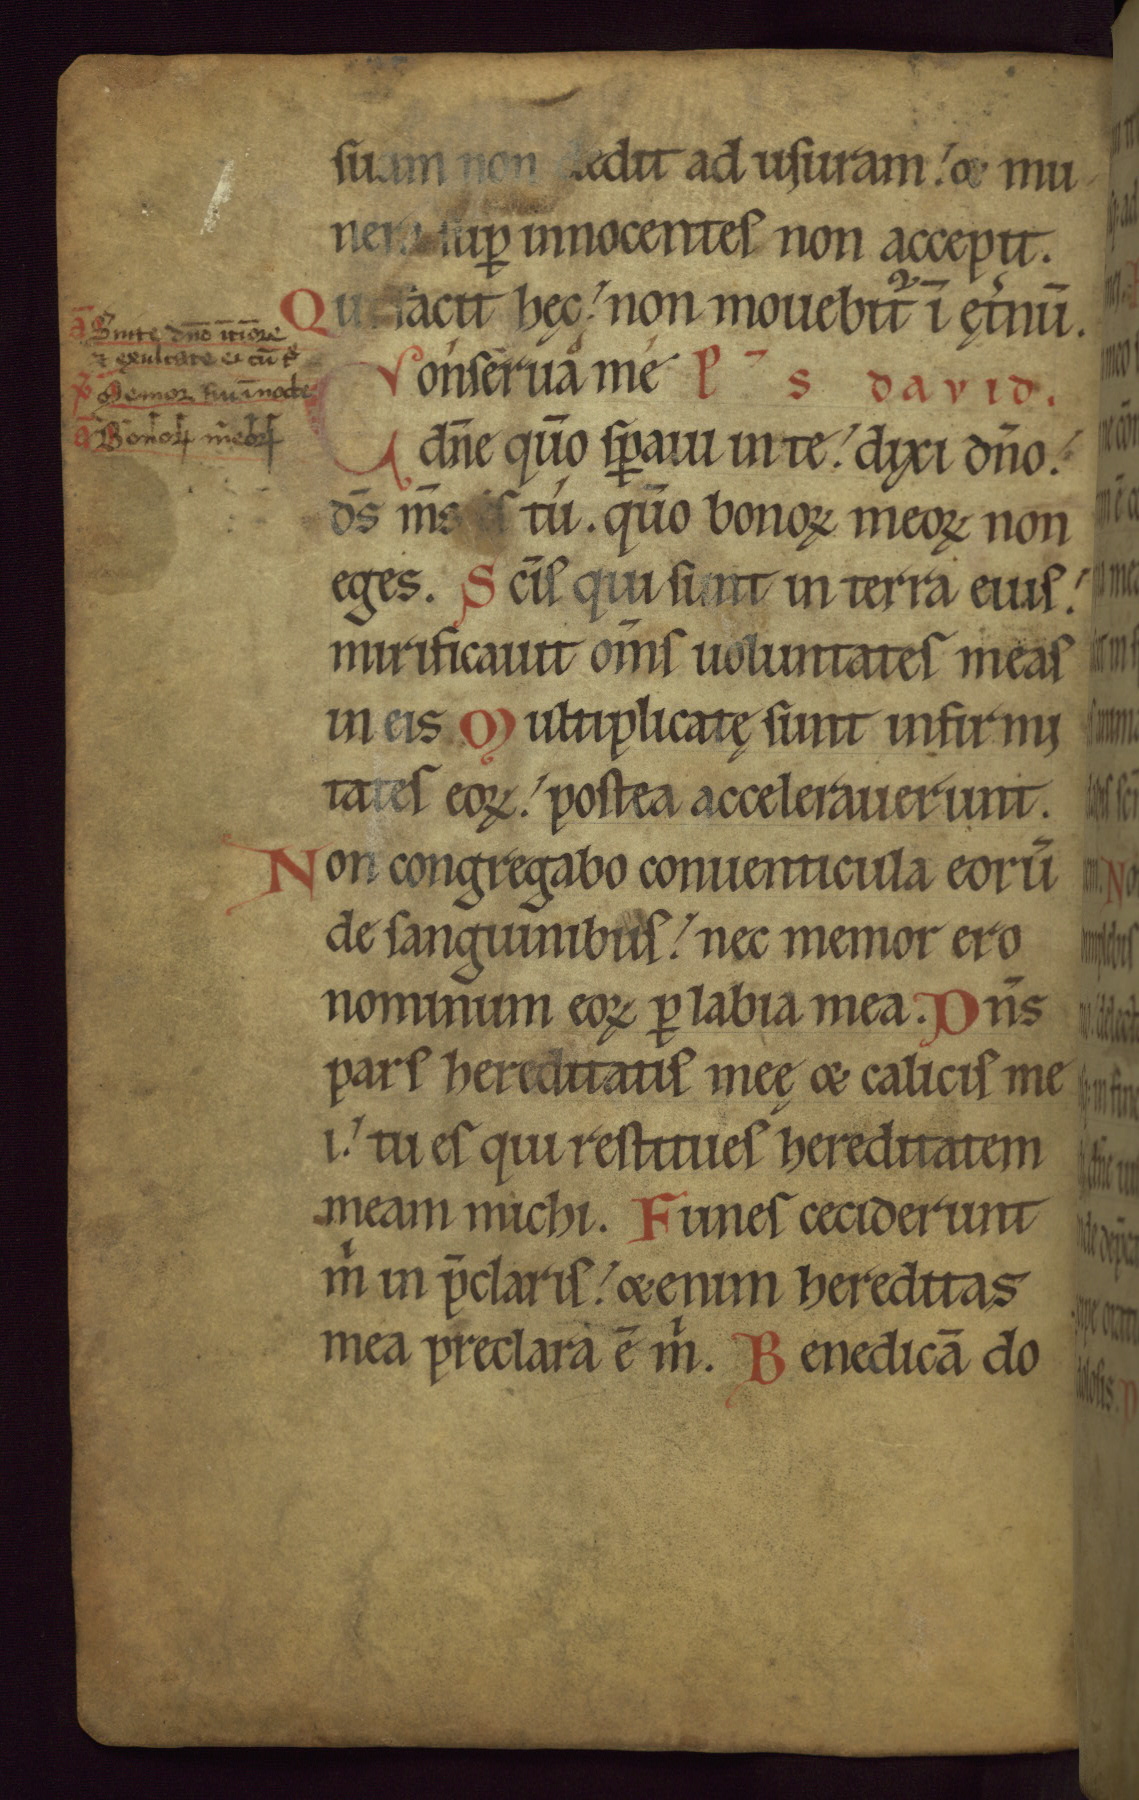 suam non dedit ad usuram. & mu
nera sup̱ innocentes non accepit.
Qui facit hęc. non mouebit᷑ ī ęt̓nū.
Conserua me ps david.
dn̄e qm̄o sp̱aui in te. dixi dn̄o.
ds̄ ms̄ es tu. qm̄o bonoꝝ meoꝝ non
eges. Scīs qui sunt in terra eius.
mirificauit om̄s uoluntates meas
in eis Multiplicatę sunt infirmi
tates eoꝝ. postea accelerauerunt.
Non congregabo conuenticula eorū
de sanguinibus. nec memor ero
nominum eoꝝ ꝑ labia mea. Dn̄s
pars hereditatis meę & calicis me
i. tu es qui restitues hereditatem
meam michi. Funes ceciderunt
m̍ in p̄claris. & enim hereditas
mea preclara ē m̍. Benedicā do
ā Suite dn̄o ī tīore
⁊ exultate ei cū t̓
Memor
ā Bonoꝝ meoꝝ